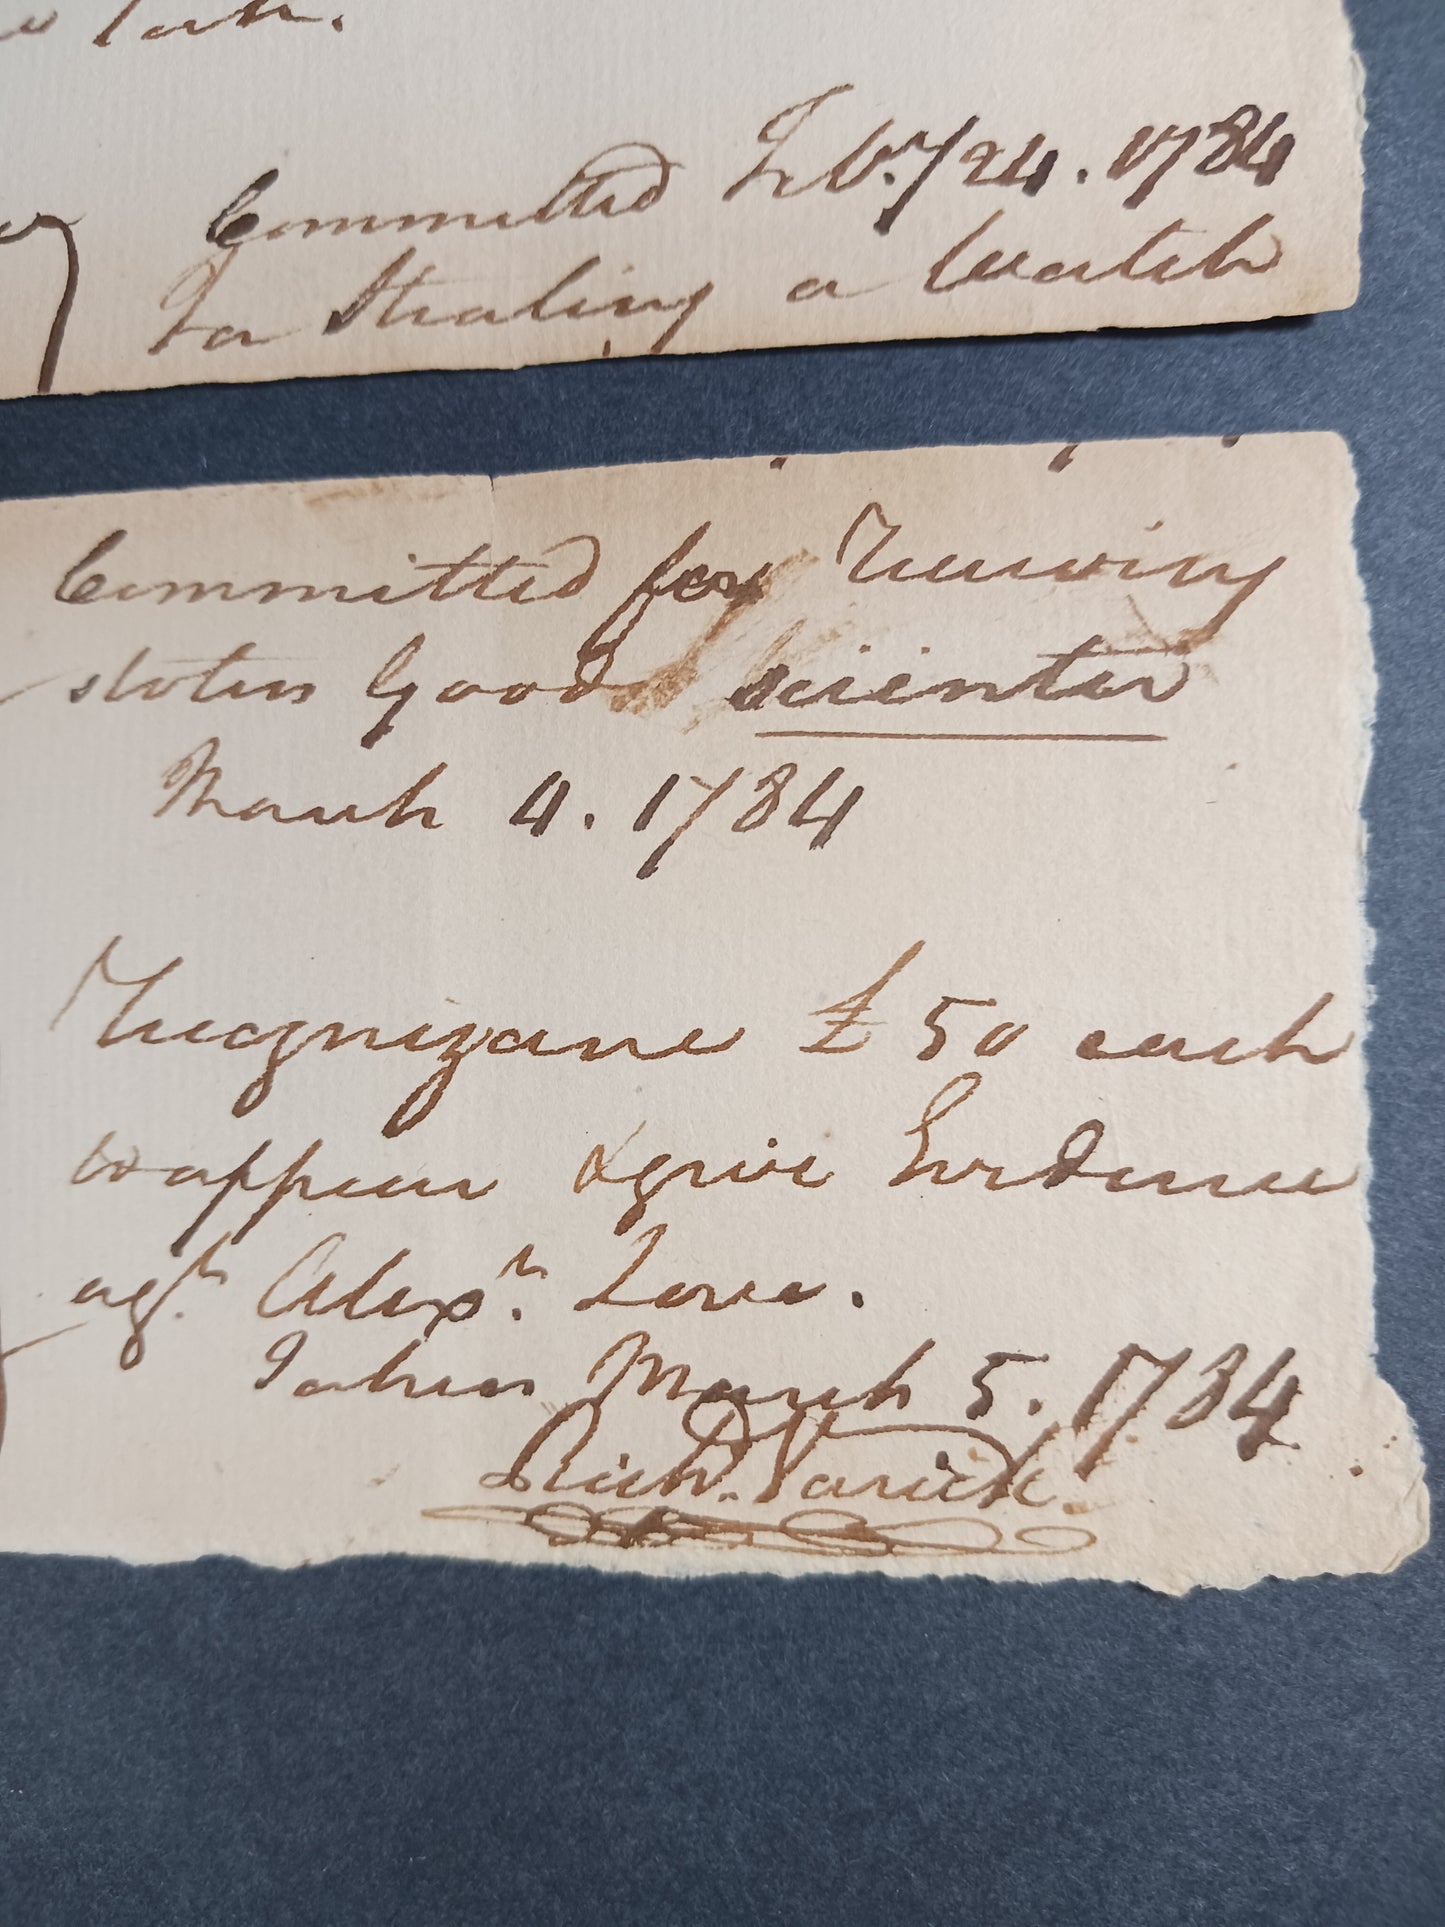 Committed Feb.y 24. 1784
For Stealing a Watch
Committed for Receiving
stolen Good scienter
March 4. 1784
Recognizance £50 each
to appear & give Evidence
ag.t Alex.r Love.
Taken March 5. 1784
Rich.d Varick.